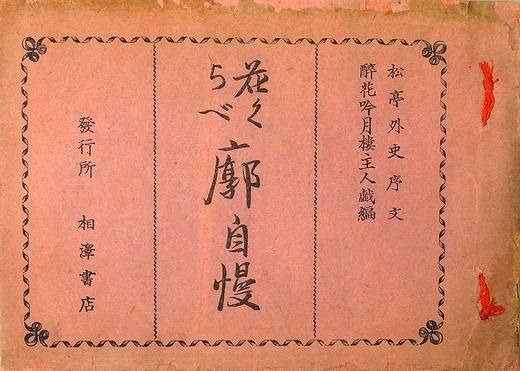 松亭外史序文
醉花吟月樓主人戯編
花くらべ
廓自慢
發行所 相澤書店